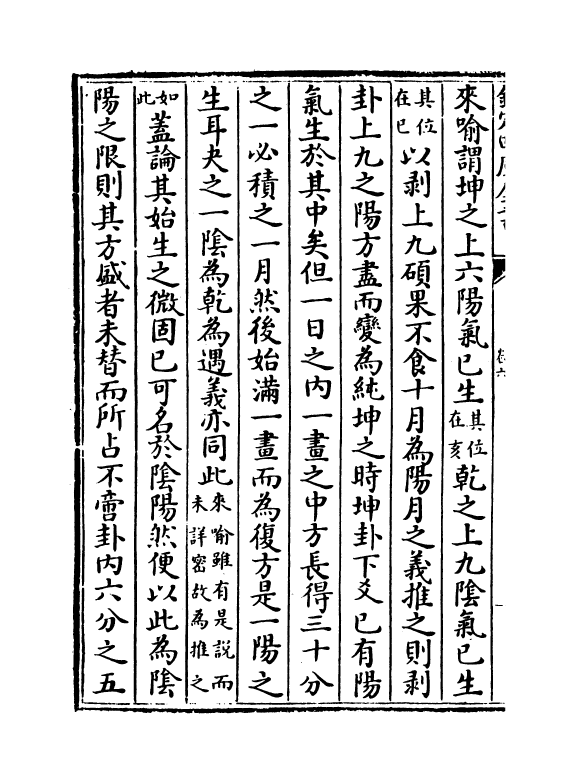 來喻謂坤之上六陽氣已生其位在亥乾之上九陰氣已生
其位在巳以剥上九碩果不食十月為陽月之義推之則剥
卦上九之陽方盡而變為純坤之時坤卦下爻已有陽
氣生於其中矣但一日之内一畫之中方長得三十分
之一必積之一月然後始滿一畫而為復方是一陽之
生耳夬之一陰為乾為遇義亦同此來喻雖有是說而未詳密故為推之
如此蓋論其始生之微固已可名於陰陽然便以此為陰
陽之限則其方盛者未替而所占不啻卦内六分之五